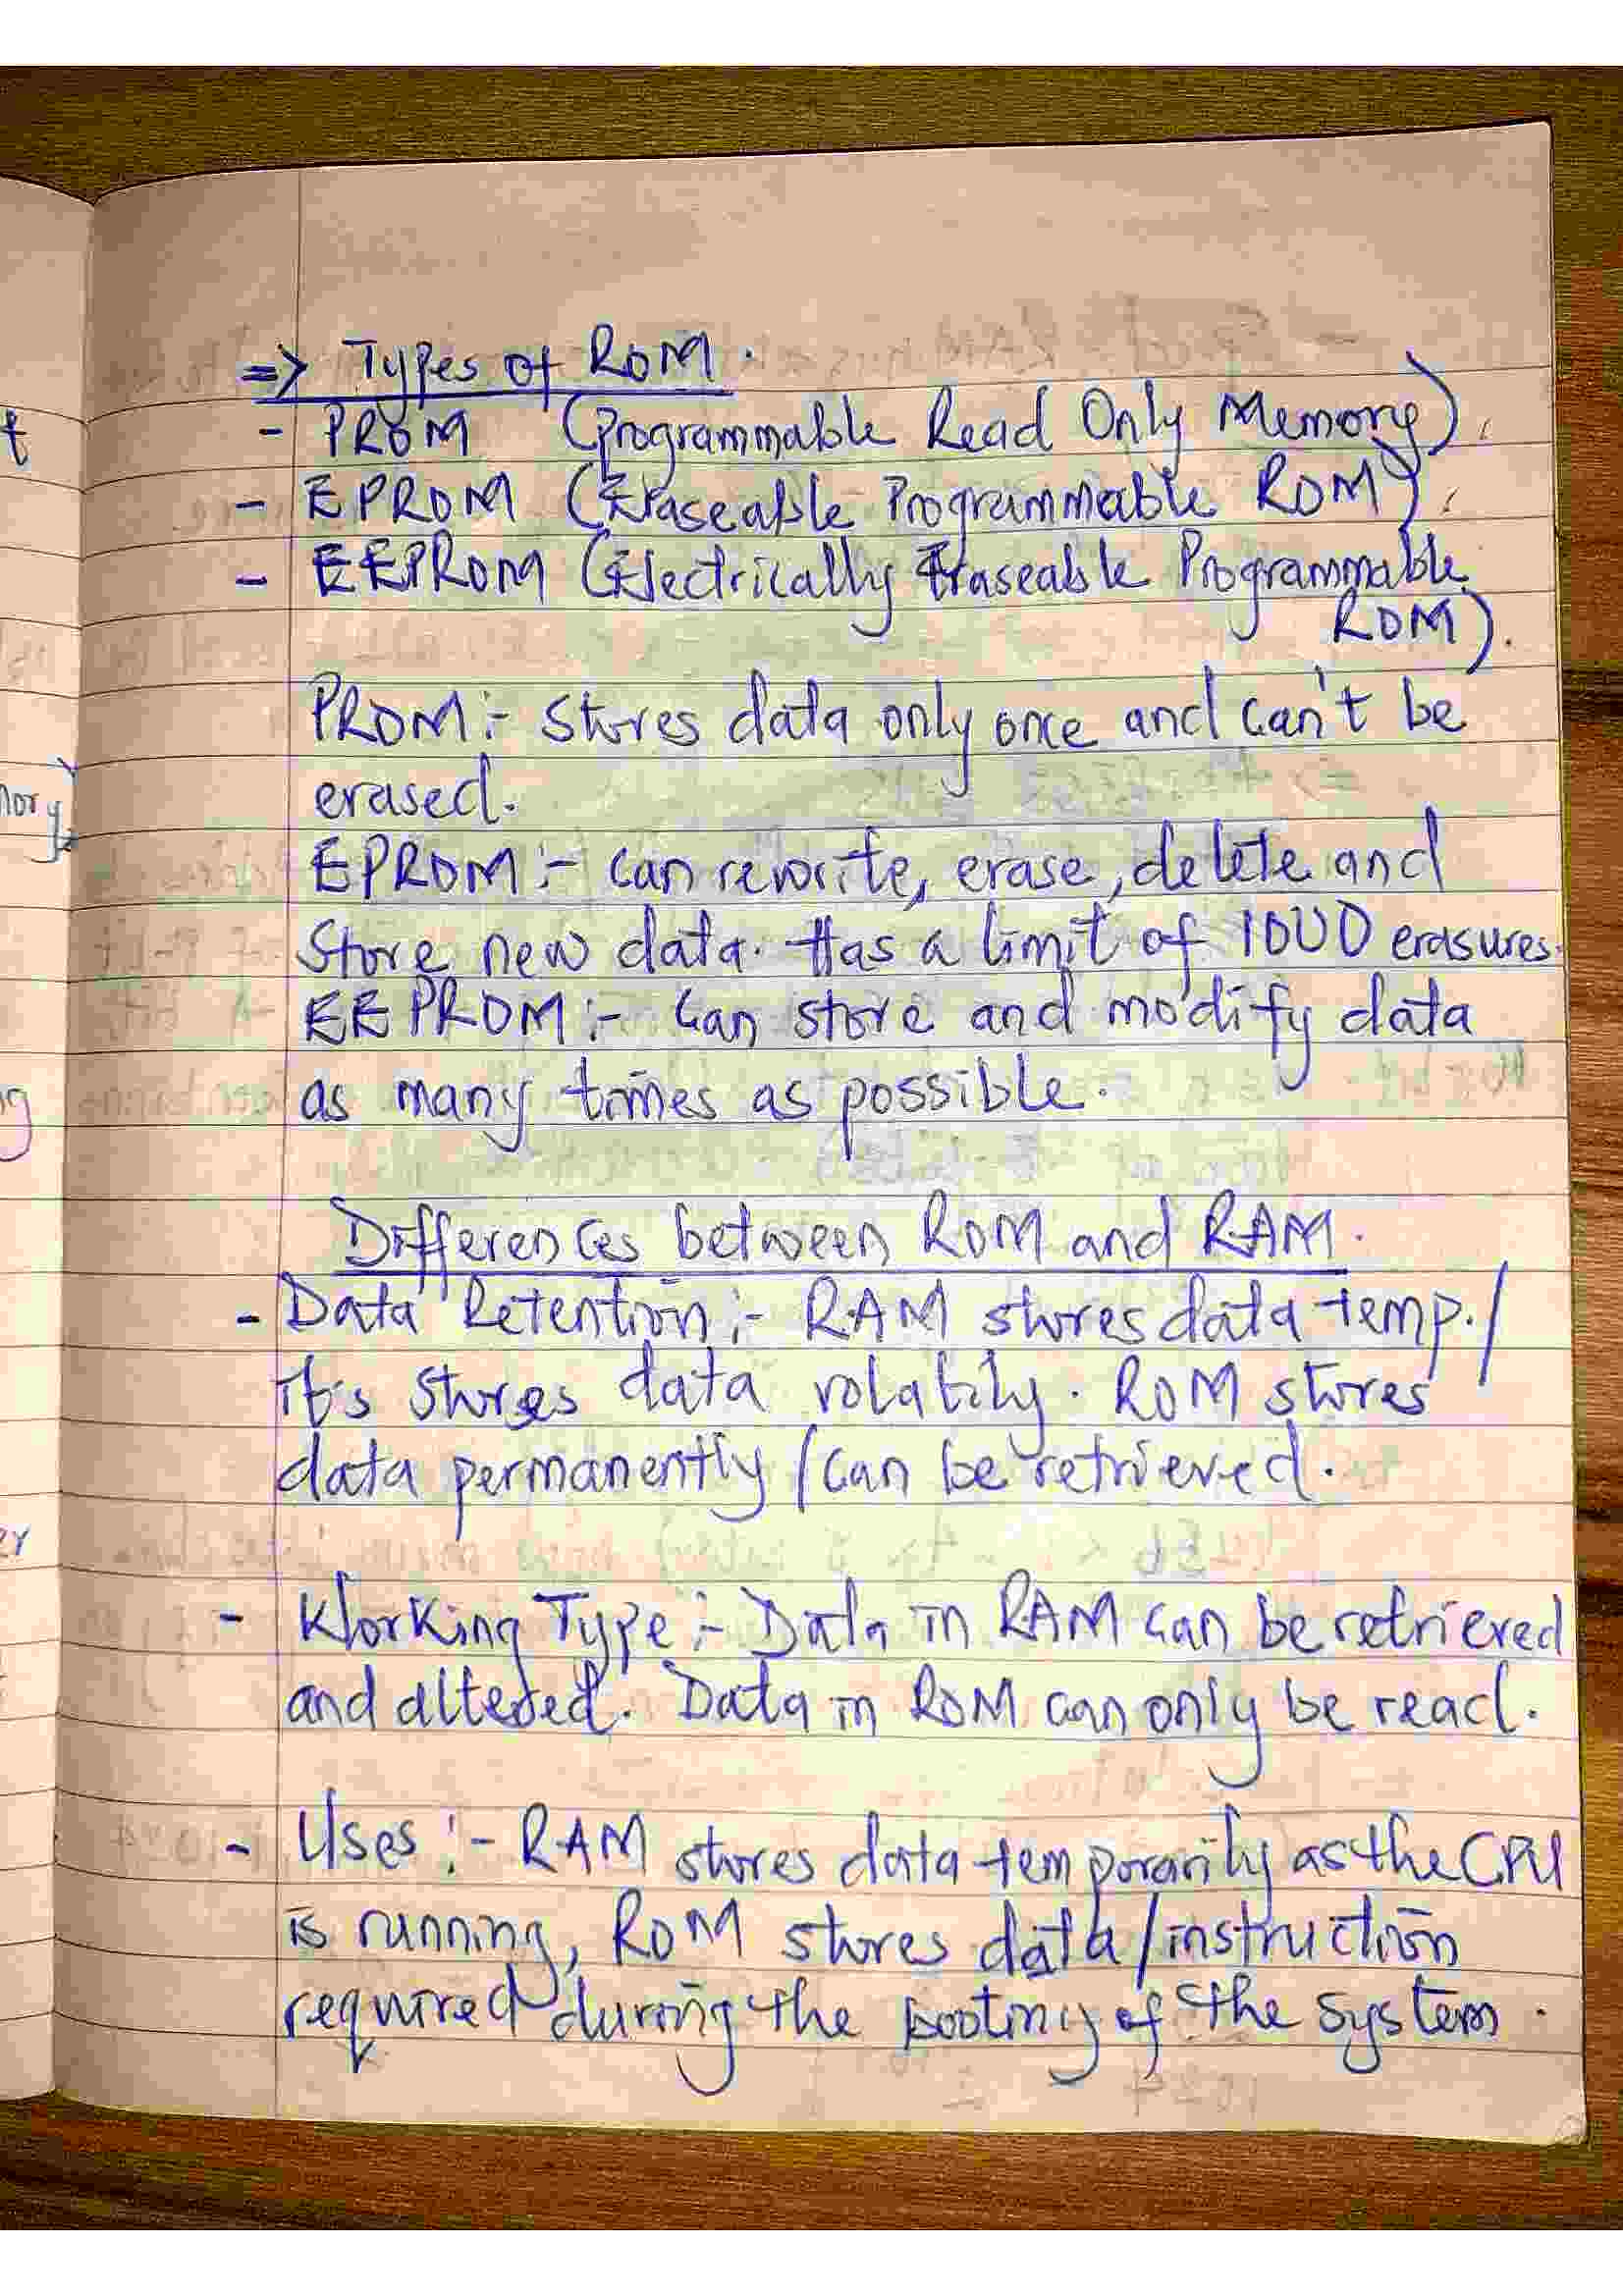 => Types of ROM.
- PROM (Programmable Read Only Memory).
- EPROM (Eraseable Programmable ROM).
- EEPROM (Electrically Eraseable Programmable
ROM).
PROM:- Stores data only once and can't be
erased.
EPROM:- Can rewrite, erase, delete and
Store new data. Has a limit of 1000 erasures.
EEPROM:- Can store and modify data
as many times as possible.
Differences between ROM and RAM.
- Data Retention:- RAM stores data temp./
it's stores data volatily. ROM stores
data permanently/can be retrieved.
- Working Type:- Data in RAM can be retrieved
and altered. Data in ROM can only be read.
- Uses:- RAM stores data temporarily as the CPU
is running, ROM stores data/instruction
required during the booting of the system.